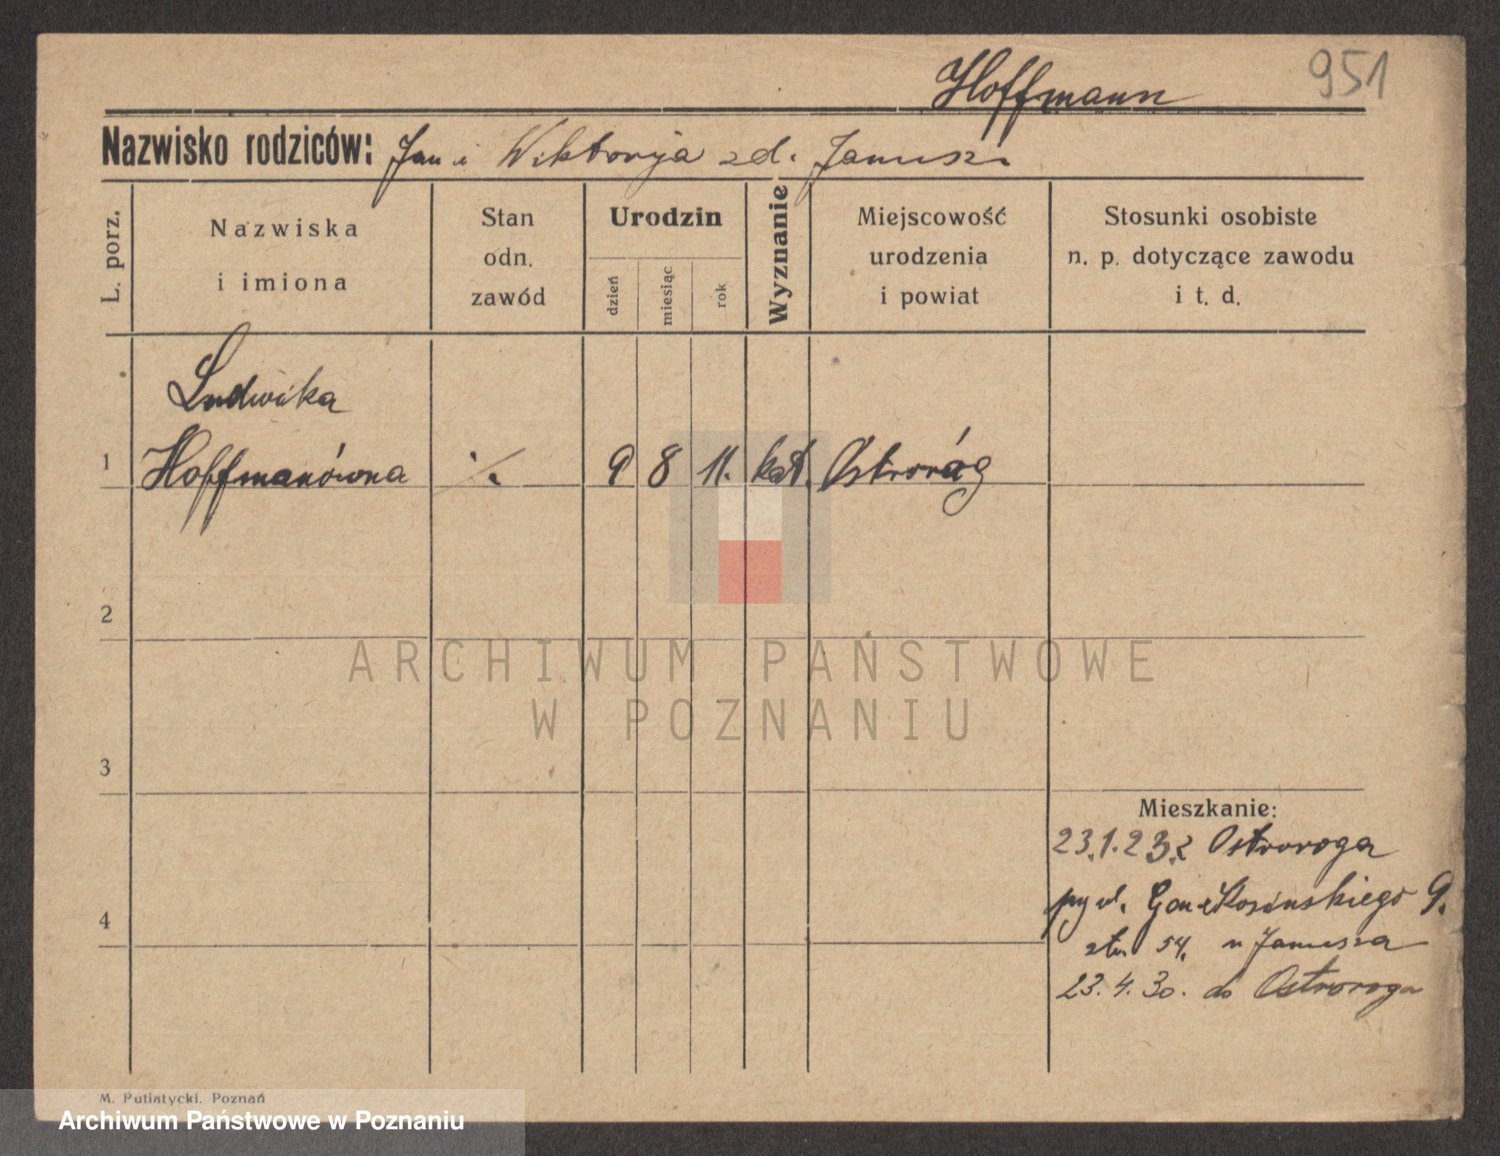 951
Hoffmann
Nazwisko rodziców: Jan i Wiktorja zd. Janusza
L. porz.
Nazwiska
i imiona
Stan
odn.
zawód
Urodzin
dzień
miesiąc
rok
Wyznanie
Miejscowość
urodzenia
i powiat
Stosunki osobiste
n. p. dotyczące zawodu
i t. d.
Ludwika
1 Hoffmanówna ./. 9 8 11. kat. Ostroróg
2
ARCHIWUM PAŃSTWOWE
W POZNANIU
3
Mieszkanie:
23.1.23 z Ostroroga
4
9.
54. u Janusza
23.4.30. do Ostroroga
M. Putiatycki. Poznań
Archiwum Państwowe w Poznaniu